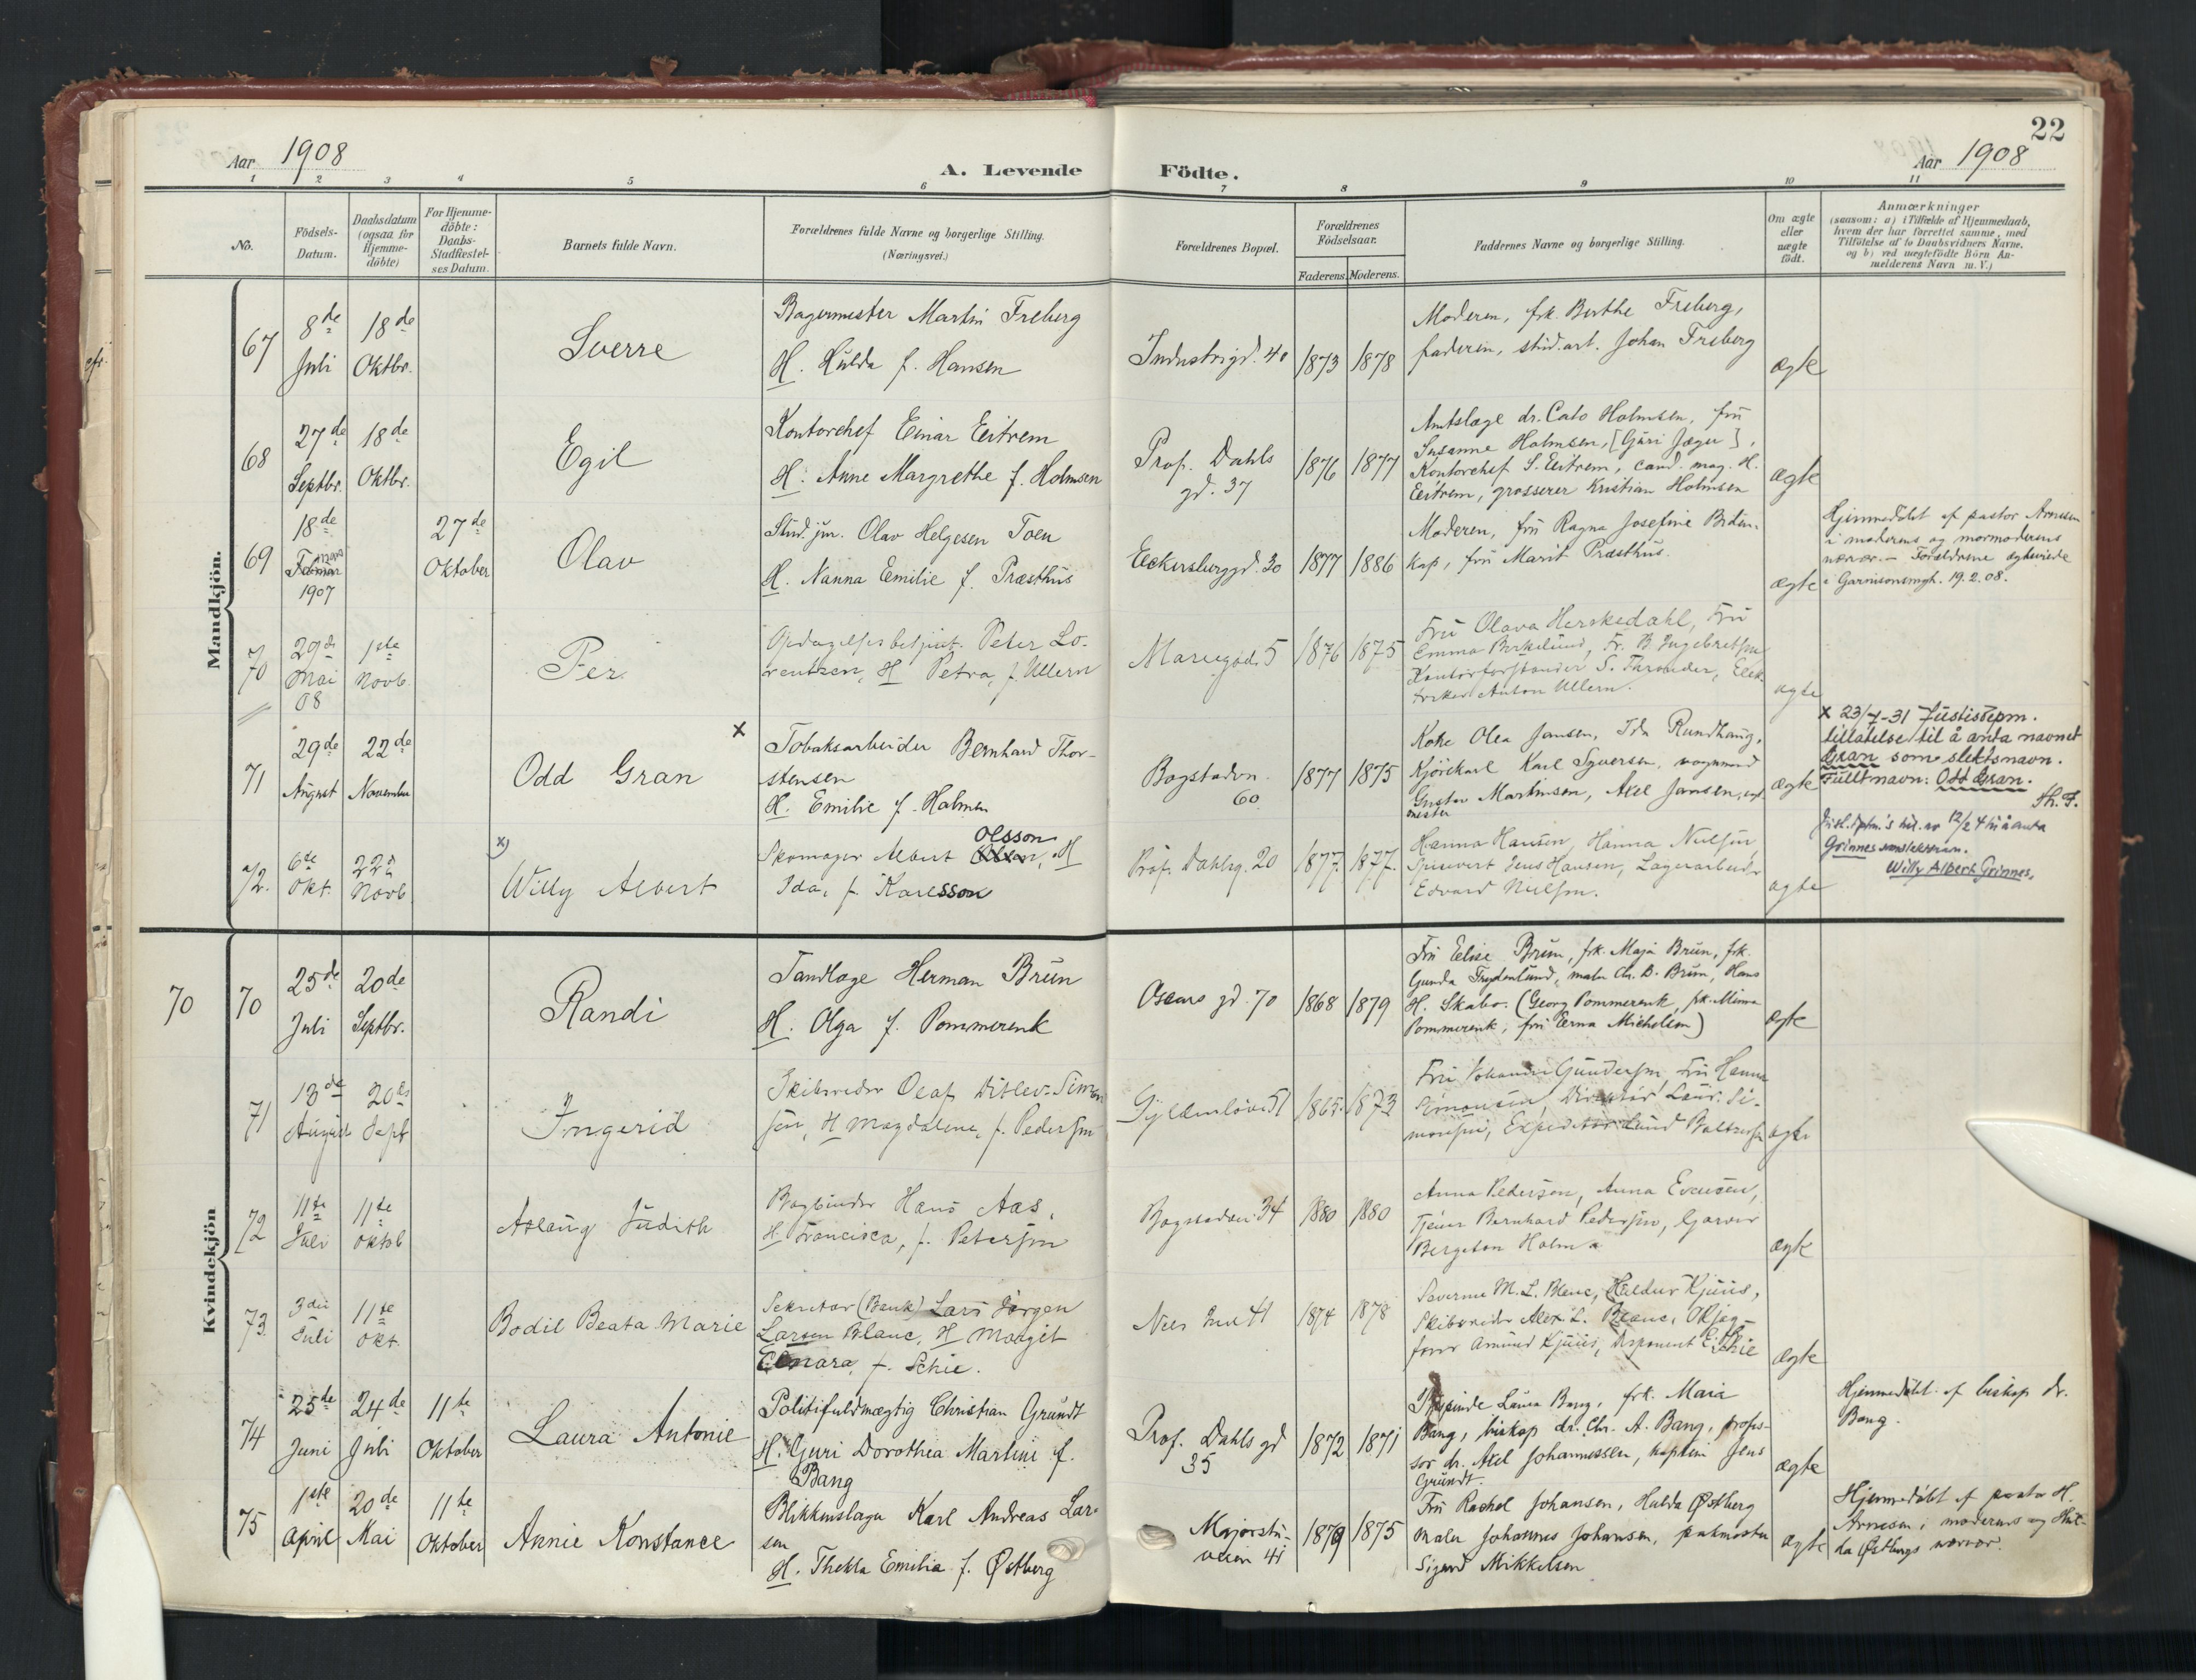 22
Aar 1908
A. Levende Födte.
Aar 1908
1 2 3 4 5 6 7 8 9 10 11
No.
Födsels-
Datum.
Daabsdatum
(ogsaa for
Hjemme-
döbte)
For Hjemme-
döbte:
Daabs-
Stadfæstel-
ses Datum.
Barnets fulde Navn.
Forældrenes fulde Navne og borgerlige Stilling.
(Næringsvei.)
Forældrenes Bopæl.
Forældrenes
Födselsaar.
Faderens. Moderens.
Faddernes Navne og borgerlige Stilling.
Om ægte
eller
uægte
födt.
Anmærkninger
(saasom: a) i Tilfælde af Hjemmedaab,
hvem der har forrettet samme, med
Tilföielse af to Daabsvidners Navne.
og b) ved uægtefödte Börn An-
melderens Navn m. V.)
Mandkjön.
67
8de
Juli
18de
Oktbr.
Sverre
Bagermester Martin Freberg
H. Hulda f. Hansen
Industrigd. 40
1873 1878
Moderen, frk. Berthe Freberg,
faderen, stud. art. Johan Freberg
ægte
68
27de
Septbr.
18de
Oktbr.
Egil
Kontorchef Einar Eitrem
H. Anne Margrethe f. Holmsen
Prof. Dahls
gd. 37
1876 1877
Amtslæge dr. Cato Holmsen, fru
Susanne Holmsen, [Guri Jæger],
Kontorchef S. Eitrem, cand. mag. H.
Eitrem, grosserer Kristian Holmsen
ægte
69
18de
1907
27de
Oktober
Olav
Stud. jur. Olav Helgesen Toen
H. Nanna Emilie f. Præsthus
Eckersberggd. 30
1877 1886
Moderen, fru Ragna Josefine
kap, fru Marit Præsthus.
ægte
Hjemmedöbt af pastor Arnesen
i moderens og mormoderens
nærvær. - Forældrene ægteviede
i Garnisonsmgh. 19.2.08.
70
29de
Mai
08
1ste
Novb.
Per
Opdagelsesbetjent Peter Lo-
rentzen, H Petra, f. Ullern
Mariegad. 5
1876 1875
Fru Olava Herskedahl, Fru
Emma Berkelund, Fr. B. Ingebretsen
Kontorforstander S. Thrander, Elek-
triker Anton Ullern.
ægte
71
29de
August
22de
November
Odd Gran
x
Tobaksarbeider Bernhard Thor-
stensen
H. Emilie f. Holmen
Bogstadvn.
60
1877 1875
Koke Olea Jansen, Ida Rundhaug,
Kjörekarl Karl Syversen, vognmand
Gustav Martinsen, Axel Jansen,
mester
ægte
x 23/7-31 Justisdepm.
tillatelse til å anta navnet
Gran som slektsnavn.
Fullt navn: Odd Gran.
Th. F.
72.
6te
Okt.
22de
Novb
x)
Willy Albert
Skomager Albert Olsson, H
Ida, f. Karlsson
Prof. Dahlsg. 20
1877. 1877.
Hanna Hansen, Hanna Nielsen,
Jens Hansen, Lagerarbeider
Edvard Nielsen.
ægte
Just.dptm.'s bev. av 12/2 4 til å anta
Grinnes som slektsnavn.
Willy Albert Grinnes.
Kvindekjön
70
70
25de
Juli
20de
Septbr.
Randi
Tandlæge Herman Brun
H. Olga f. Pommerenk
Oscars gd. 70
1868 1879
Fru Elise Brun, frk. Maja Brun, frk.
Gunda Frydenlund, maler Ch. B. Brun, Hans
H. Skabo. (Georg Pommerenk, frk. Minna
Pommerenk, fru Erna Michelsen)
ægte
71
13de
August
20de
Sept
Ingerid
Skibsreder Olaf Ditlev-Simon
sen, H Magdalene, f. Pedersen
Gyldenløves 51
1865. 1873
Fru Johanne Gundersen, Fru Hanna
Simonsen, Direktör Laur. Si-
monsen, Expeditör Lund Baltzersen
ægte
72
11te
Juli
11te
Oktob
Aslaug Judith
Bogbinder Hans Aas,
H. Francisca, f. Petersen
Bogstadvn. 34
1880 1880
Anna Pedersen, Anna Evensen,
Tjener Bernhard Pedersen, Garver
Bergeton Holm
ægte
73.
3die
Juli
11te
Okt.
Bodil Beata Marie
Sekretær (Bank) Lars Jörgen
Larsen Blanc, H Margit
Elnara, f. Schie.
Niels Juel 41
1874 1878
Severine M. L. Blanc, Haldur Kjuus,
Skibsreder Alex. L. Blanc,
Amund Kjuus, Disponent E. Schie
ægte
74
25de
Juni
24de
Juli
11te
Oktober
Laura Antonie
Politifuldmægtig Christian Grundt
H. Guri Dorothea Martini f.
Bang
Prof. Dahls gd
35
1872 1871
Bispinde Laura Bang, frk. Maia
Bang, biskop dr. Chr. A. Bang, profes-
sor dr. Axel Johannessen, kaptein Jens
Grundt.
ægte
Hjemmedöbt af biskop dr.
Bang.
75
1ste
April
20de
Mai
11te
Oktober
Annie Konstance
Blikkenslager Karl Andreas Lar-
sen
H. Thekla Emilia f. Østberg
Majorstu-
veien 41
1879 1875
Fru Rachel Johansen, Hulda Østberg
maler Johannes Johansen, pakmester
Sigurd Mikkelsen
ægte
Hjemmedöbt af pastor H.
Arnesen i moderens og Hul-
da Østbergs nærvær.